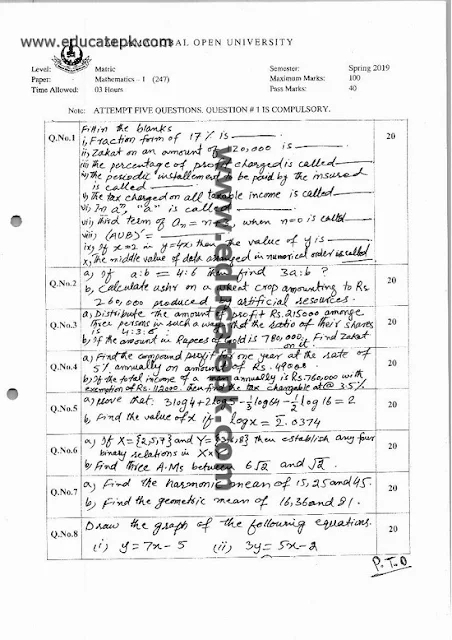 www.educatepk.com BAL OPEN UNIVERSITY
Level: Matric Semester: Spring 2019
Paper: Mathematics – I (247) Maximum Marks: 100
Time Allowed: 03 Hours Pass Marks: 40
Note: ATTEMPT FIVE QUESTIONS. QUESTION # 1 IS COMPULSORY.
Q.No.1 Fill in the blanks 20
i, Fraction form of 17% is
ii, Zakat on an amount of 120,000 is
iii, the percentage of profit charged is called
iv, the periodic installement to be paid by the insured
is called
v, the tax charged on all taxable income is called
vi, In aⁿ, "a" is called
vii, third term of aₙ = n+3, when n=0 is called
viii, (AUB)' =
ix, If x=2 in y=4x, then the value of y is
x, The middle value of data arranged in numerical order is called
Q.No.2 a, If a:b = 4:6 then find 3a:b ? 20
b, Calculate ushr on a wheat crop amounting to Rs
260,000 produced by artificial resources.
Q.No.3 a, Distribute the amount of profit Rs. 215000 amonge 20
three persons in such a way that the ratio of their shares
is 4:3:8
b, If the amount in Rupees of gold is 780,000, Find Zakat
on it
Q.No.4 a, Find the compound profit for one year at the rate of 20
5% annually on amount of Rs. 49000.
b, If the total income of a man annually is Rs. 760,000 with
exemption of Rs. 112000. then find the tax chargable at @ 3.5%
Q.No.5 a, Prove that: 3log4 + 2log5 - 1/3 log64 - 1/2 log16 = 2 20
b, Find the value of x if log x = 2.0374
Q.No.6 a, If X={2,5,7} and Y={3,6,8} then establish any four 20
binary relations in X×Y
b, Find three A.Ms between 6√2 and √2.
Q.No.7 a, Find the harmonic mean of 15, 25 and 45. 20
b, Find the geometric mean of 16, 36 and 81.
Q.No.8 Draw the graph of the following equations. 20
(i) y=7x-5 (ii) 3y=5x-2
P.T.O
www.educatepk.com